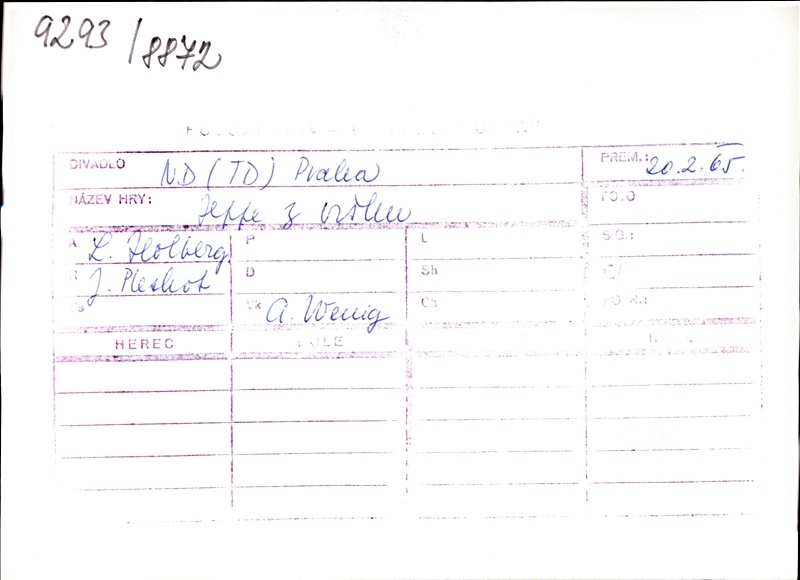 9293 / 8872
DIVADLO ND (TD) Praha PREM.: 20.2.65.
NÁZEV HRY: Jeppe z vršku
A L. Holberg P L S.G.:
R J. Pleskot D Sh
s Vk A. Wenig Ch
HEREC